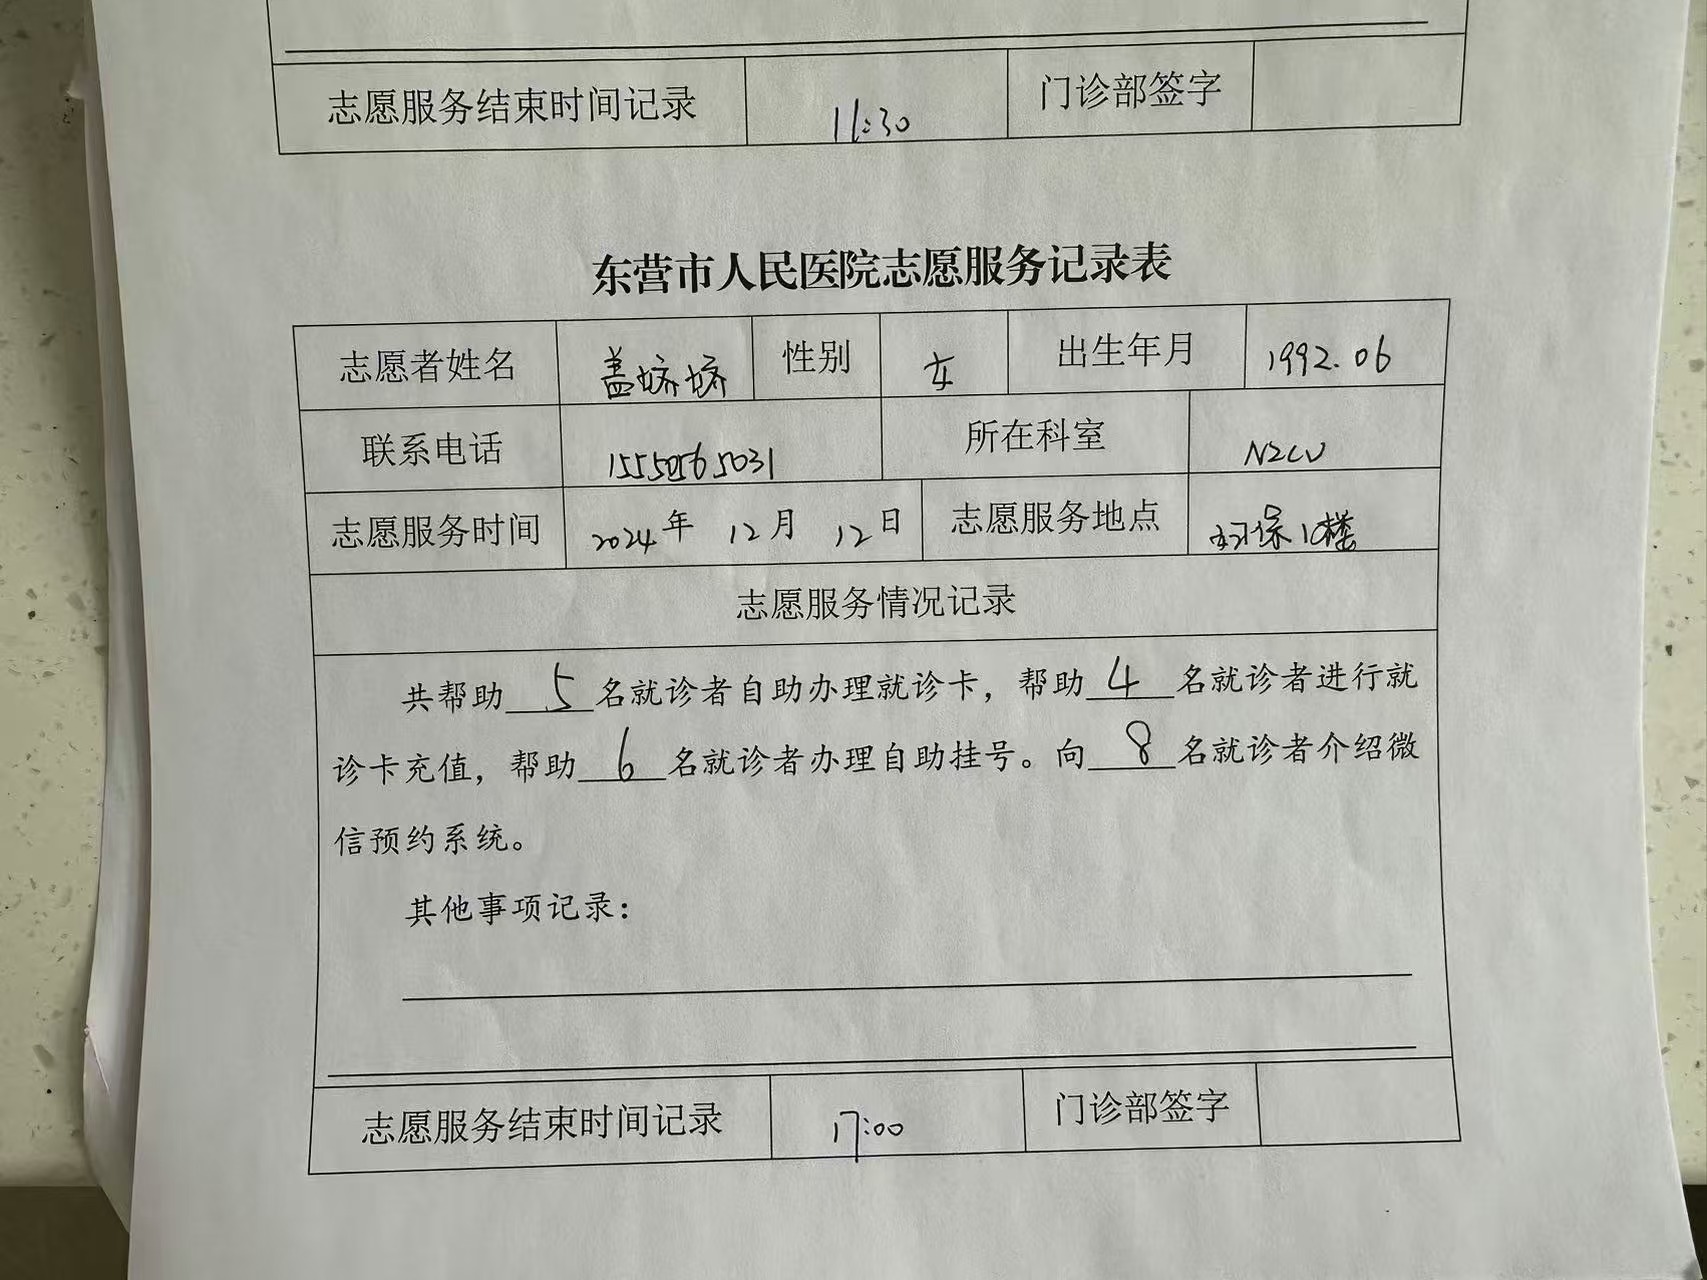 志愿服务结束时间记录 11:30 门诊部签字
东营市人民医院志愿服务记录表
志愿者姓名 盖娇娇 性别 女 出生年月 1992.06
联系电话 15550565031 所在科室 N2CU
志愿服务时间 2024年 12月 12日 志愿服务地点 妇保10楼
志愿服务情况记录
共帮助 5 名就诊者自助办理就诊卡，帮助 4 名就诊者进行就
诊卡充值，帮助 6 名就诊者办理自助挂号。向 8 名就诊者介绍微
信预约系统。
其他事项记录：
志愿服务结束时间记录 17:00 门诊部签字